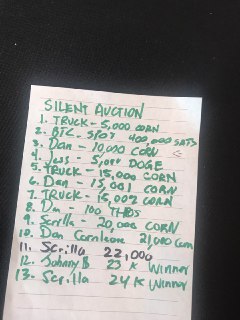 SILENT AUCTION
1. TRUCK - 5,000 CORN
2. BTC - SPOT 400,000 SATS
3. Dan - 10,000 CORN
4. Jess - 5,000 DOGE
5. TRUCK - 15,000 CORN
6. Dan - 15,001 CORN
7. TRUCK - 15,002 CORN
8. Dan - 100
9. Scrilla - 20,000 CORN
10. Dan Cornleone 21,000 Corn
11. Scrilla 22,000
12. Johnny B 23 K Winner
13. Scrilla 24K Winner